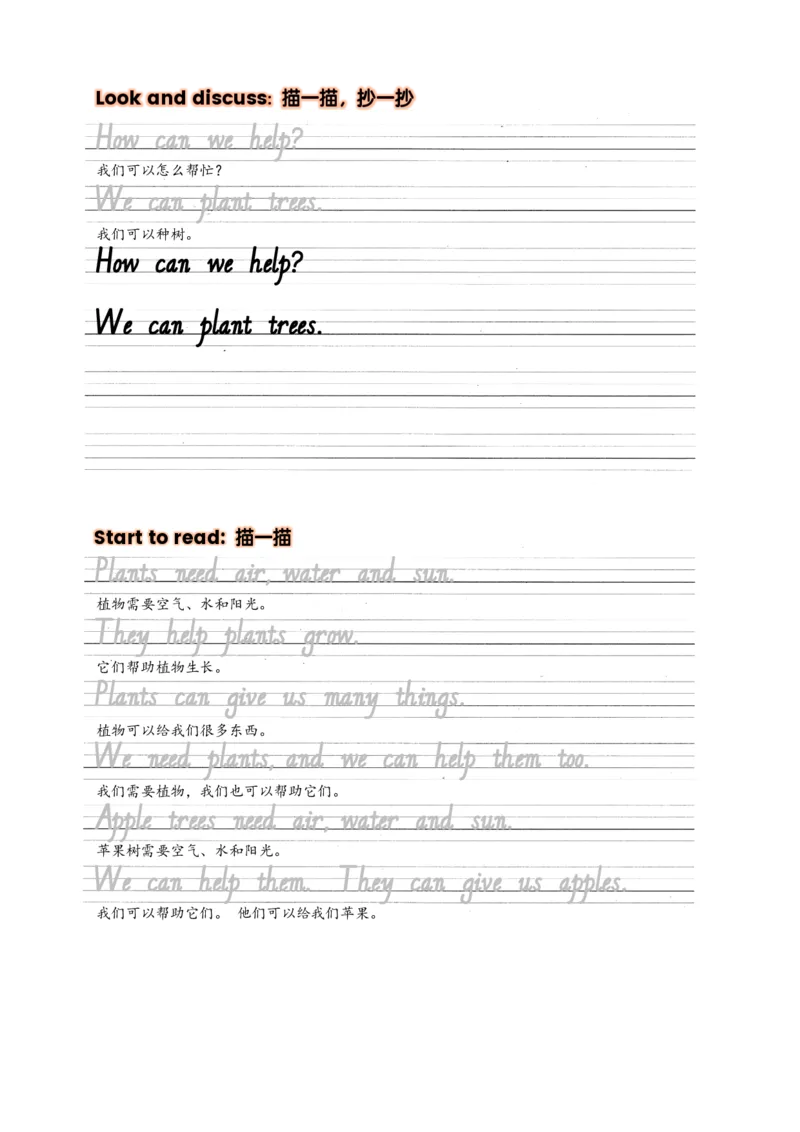 Look and discuss: 描一描，抄一抄
How can we help?
我们可以怎么帮忙？
We can plant trees.
我们可以种树。
How can we help?
We can plant trees.
Start to read: 描一描
Plants need air, water and sun.
植物需要空气、水和阳光。
They help plants grow.
它们帮助植物生长。
Plants can give us many things.
植物可以给我们很多东西。
We need plants, and we can help them too.
我们需要植物，我们也可以帮助它们。
Apple trees need air, water and sun.
苹果树需要空气、水和阳光。
We can help them. They can give us apples.
我们可以帮助它们。 他们可以给我们苹果。